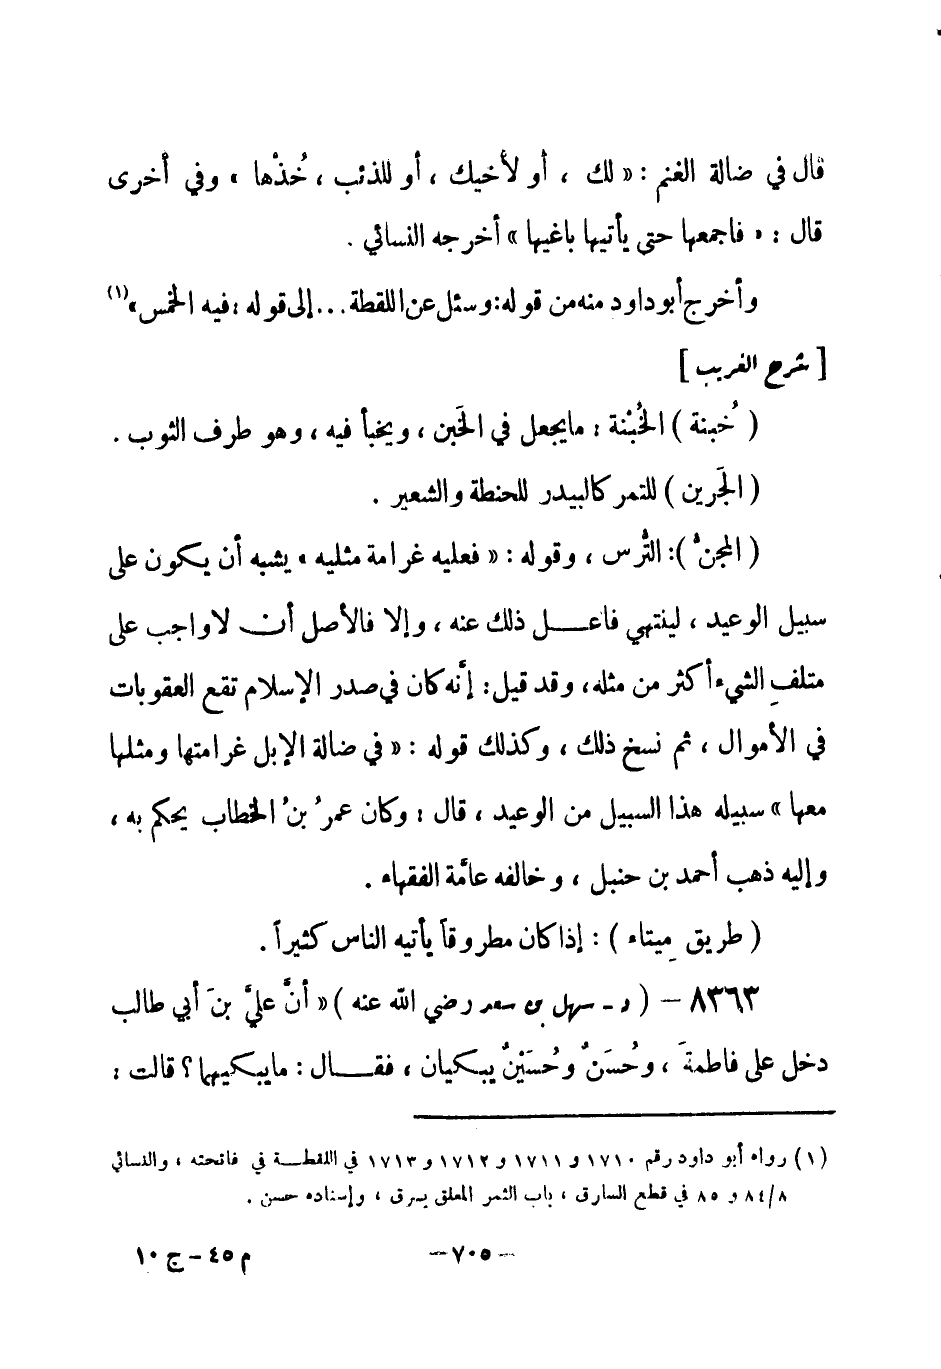 قال في ضالة الغنم : « لك ، أو لأخيك ، أو للذئب ، خُذْها » وفي أخرى
قال : « فاجمعها حتى يأتيها باغيها » أخرجه النسائي .
وأخرج أبو داود منه من قوله : وسئل عن اللقطة ... إلى قوله : فيه الخمس » (١)
[ شرح الغريب ]
( خُبنة ) الخُبْنة : مايجعل في الخَبن ، ويخبأ فيه ، وهو طرف الثوب .
( الجَرين ) للتمر كالبيدر للحنطة والشعير .
( المجنُّ ) : التُّرس ، وقوله : « فعليه غرامة مثليه » يشبه أن يكون على
سبيل الوعيد ، لينتهي فاعل ذلك عنه ، وإلا فالأصل أن لا واجب على
متلفِ الشيء أكثر من مثله ، وقد قيل : إنَّه كان في صدر الإسلام تقع العقوبات
في الأموال ، ثم نسخ ذلك ، وكذلك قوله : « في ضالة الإبل غرامتها ومثلها
معها » سبيله هذا السبيل من الوعيد ، قال : وكان عمرُ بنُ الخطاب يحكم به ،
وإليه ذهب أحمد بن حنبل ، وخالفه عامَّة الفقهاء .
( طريق مِيتاء ) : إذا كان مطروقاً يأتيه الناس كثيراً .
٨٣٦٣ – ( د - سهل بن سعد رضي الله عنه ) « أنَّ عليَّ بنَ أبي طالب
دخل على فاطمةَ ، وحُسَنٌ وحُسَيْنٌ يبكيان ، فقال : مايبكيهما ؟ قالت :
(١) رواه أبو داود رقم ١٧١٠ و ١٧١١ و ١٧١٢ و ١٧١٣ في اللقطة في فاتحته ، والنسائي
٨٤/٨ و ٨٥ في قطع السارق ، باب الثمر المعلق يسرق ، وإسناده حسن .
– ٧٠٥ –
م ٤٥ – ج ١٠